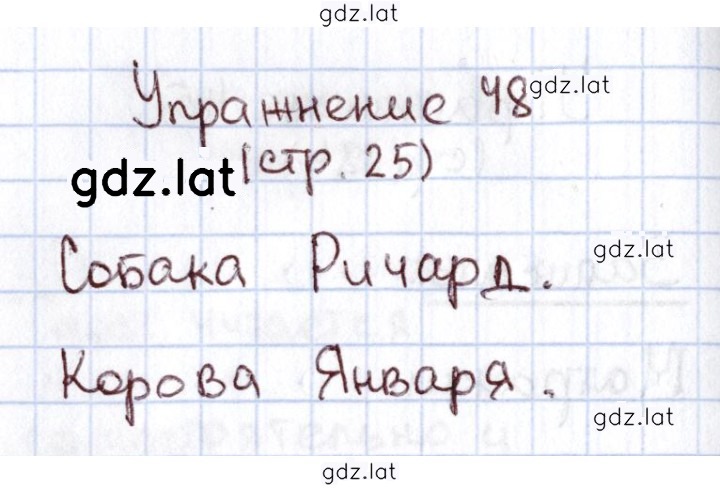 gdz.lat
Упражнение 48
gdz.lat
(стр. 25)
gdz.lat
Собака Ричард.
gdz.lat
Корова Января.
gdz.lat
gdz.lat